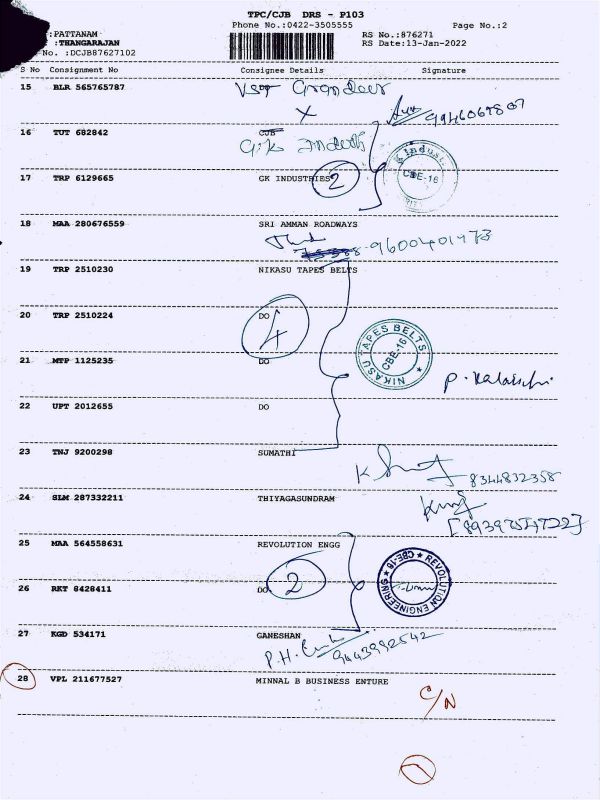 TPC/CJB DRS - P103
:PATTANAM Phone No.:0422-3505555 Page No.:2
:THANGARAJAN RS No.:876271
No. :DCJB87627102 RS Date:13-Jan-2022
S No Consignment No Consignee Details Signature
15 BLR 565765787
X 9946067807
16 TUT 682842 CJB
G.K
17 TRP 6129665 GK INDUSTRIES 2
CBE-16
18 MAA 280676559 SRI AMMAN ROADWAYS
9600401473
19 TRP 2510230 NIKASU TAPES BELTS
20 TRP 2510224 DO
4
NIKASU TAPES BELTS CBE-16
21 MTP 1125235 DO
22 UPT 2012655 DO
23 TNJ 9200298 SUMATHI
8344832358
24 SLM 287332211 THIYAGASUNDRAM
25 MAA 564558631 REVOLUTION ENGG
REVOLUTION ENGINEERING CBE-16
26 RKT 8428411 DO 2
27 KGD 534171 GANESHAN
P.H. 9443992542
28 VPL 211677527 MINNAL B BUSINESS ENTURE
C/N